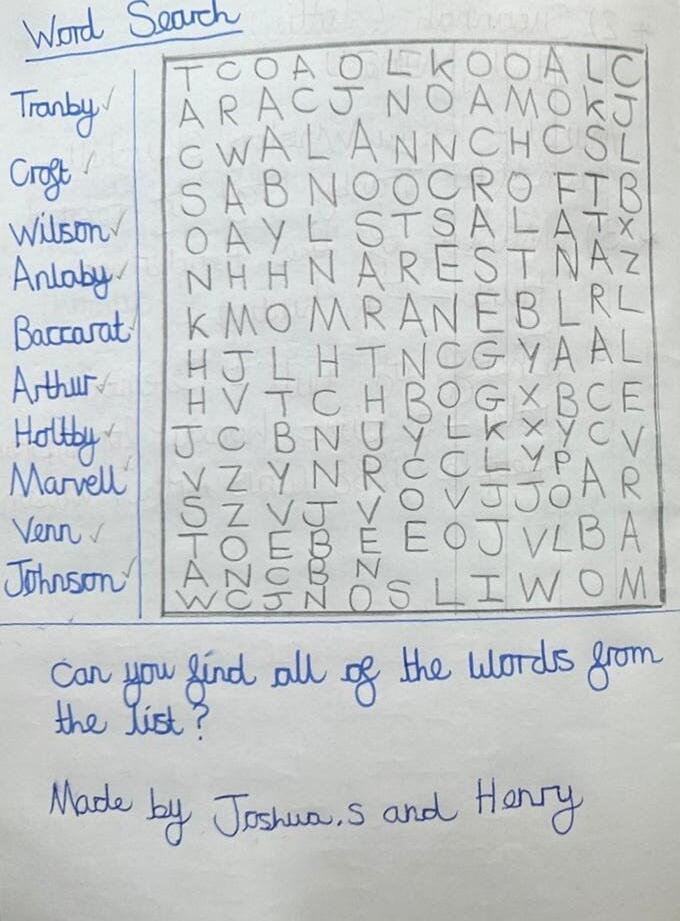 Word Search
Tranby ✓
Croft ✓
Wilson ✓
Anlaby ✓
Baccarat ✓
Arthur ✓
Holtby ✓
Marvell ✓
Venn ✓
Johnson ✓
T C O A O L K O O A L C
A R A C J N O A M O K J
C W A L A N N C H C S L
S A B N O O C R O F T B
O A Y L S T S A L A T X
N H H N A R E S T N A Z
K M O M R A N E B L R L
H J L H T N C G Y A A L
H V T C H B O G X B C E
J C B N U Y L K X Y C V
V Z Y N R C C L Y P A R
S Z V J V O V J J O
T O E B E E O J V L B A
A N C B N
W C J N O S L I W O M
Can you find all of the words from
the list?
Made by Joshua.S and Henry